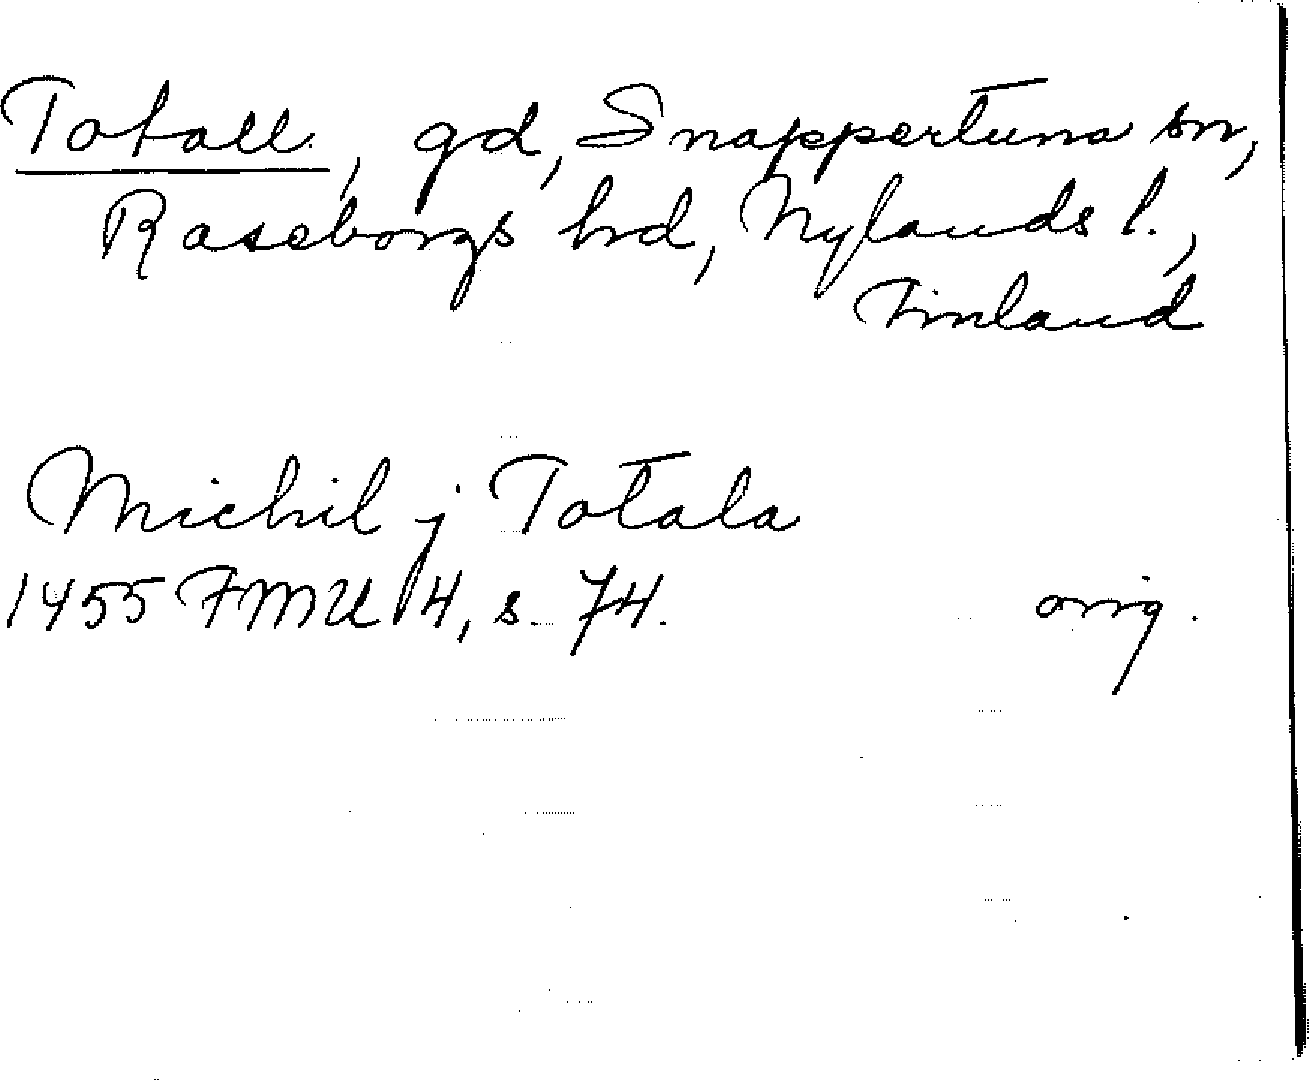 Totall, gd, Snappertuna sn,
Raseborgs hrd, Nylands l.,
Finland
Michil j Totala
1455 FMU 4, s. 74.
orig.